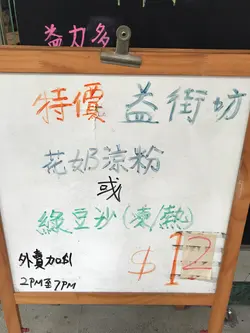 益力多
特價 益街坊
花奶涼粉
或
綠豆沙(凍/熱)
外賣加$1
2PM至7PM
$12